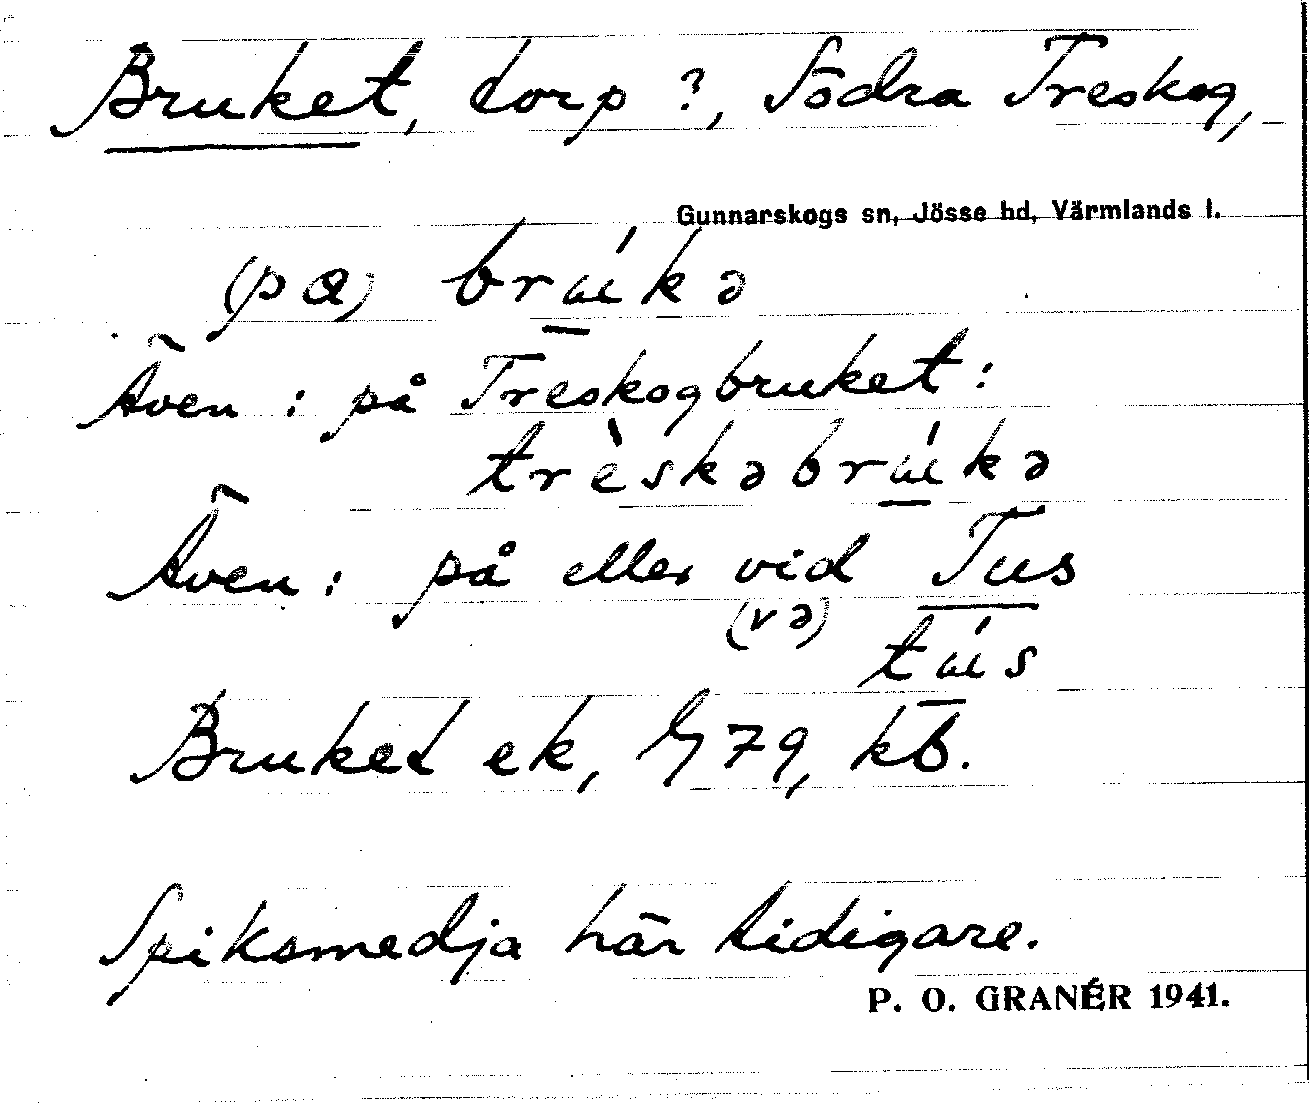 Bruket, torp ?, Södra Treskog,
Gunnarskogs sn, Jösse hd, Värmlands l.
(pɑ) brɯ́kə
Även : på Treskogbruket :
trèskəbrɯ́kə
Även : på eller vid Tus
(və)
tɯ́s
Bruket ek, G 79, kb.
Spiksmedja här tidigare.
P. O. GRANÉR 1941.